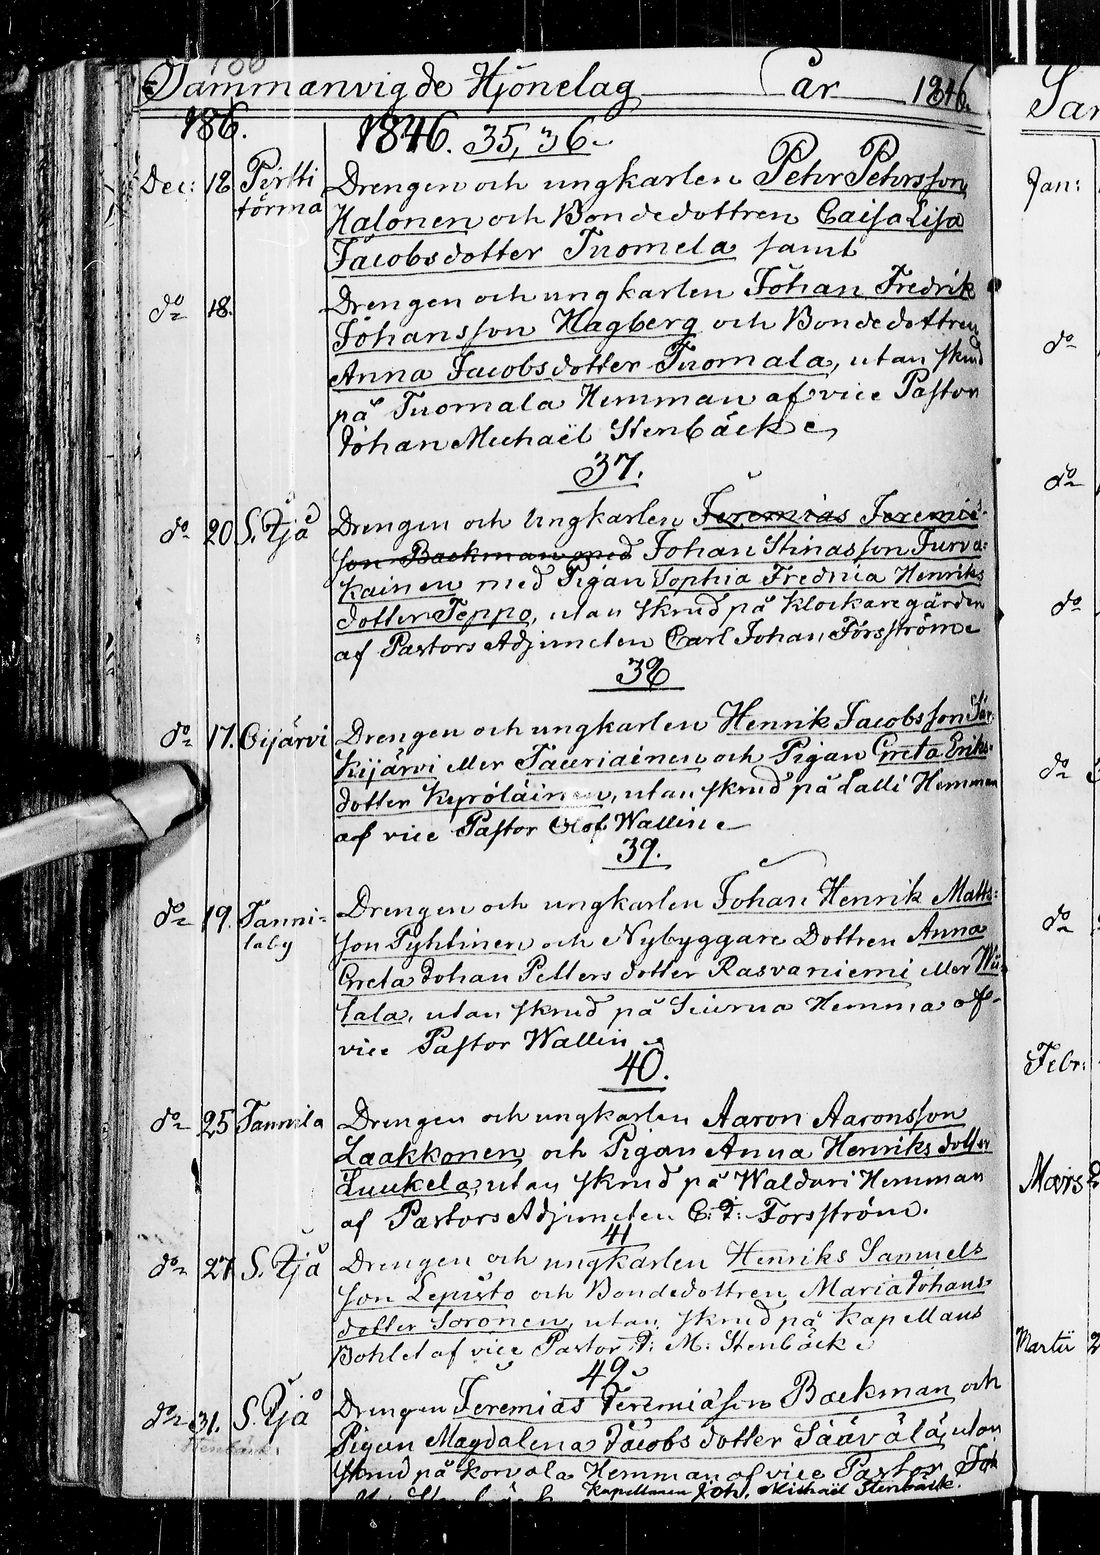 Sammanvigde Hjonelag år 1846.
186. 1846. 35, 36.
Dec: 18 Pirtti Drengen och ungkarlen Pehr Pehrsson
törmä Halonen och Bondedottren Caisa Lisa
Jacobsdotter Tuomela samt
do 18. Drengen och ungkarlen Johan Fredrik
Johansson Hagberg och Bondedottren
Anna Jacobsdotter Tuomala, utan skrud
på Tuomala Hemman af vice Pastor
Johan Michaël Stenbäck
37.
do 20 S. Ijå Drengen och Ungkarlen Jeremias Jeremias-
son Backman med Johan Stinasson Turva-
kainen med Pigan Sophia Fredrica Henriks
dotter Teppo, utan skrud på Klockaregården
af Pastors Adjuncten Carl Johan Forsström
38
do 17. Oijärvi Drengen och ungkarlen Henrik Jacobsson
Kijärvi eller Tauriainen och Pigan Greta Eriks-
dotter Kyröläinen, utan skrud på Lalli Hemman
af vice Pastor Olof Wallin
39.
do 19. Tanni- Drengen och ungkarlen Johan Henrik Matts-
laby son Pyhtinen och Nybyggare Dottren Anna
Greta Johan Petters dotter Rasvaniemi eller Wii-
tala, utan skrud på Siurua Hemma af
vice Pastor Wallin
40.
do 25 Tannila Drengen och ungkarlen Aaron Aaronsson
Laakkonen och Pigan Anna Henriks dotter
Luukela, utan skrud på Waldari Hemman
af Pastors Adjuncten C: J: Forsström.
41
do 27 S. Ijå Drengen och ungkarlen Henriks Samuels
son Lepistö och Bondedottren Maria Johans
dotter Soronen, utan skrud på Kapellans
Bohlet af vice Pastor J: M: Stenbäck
42
do 31. S. Ijå Drengen Jeremias Jeremiasson Backman och
Stenbäck. Pigan Magdalena Jacobs dotter Säävälä, utan
skrud på Korvala Hemman af vice Pastor Joh
Kapellanen Joh. Michaël Stenbäck.
Jan:
do
do
do
do
do
Febr:
Mars
Martii 2